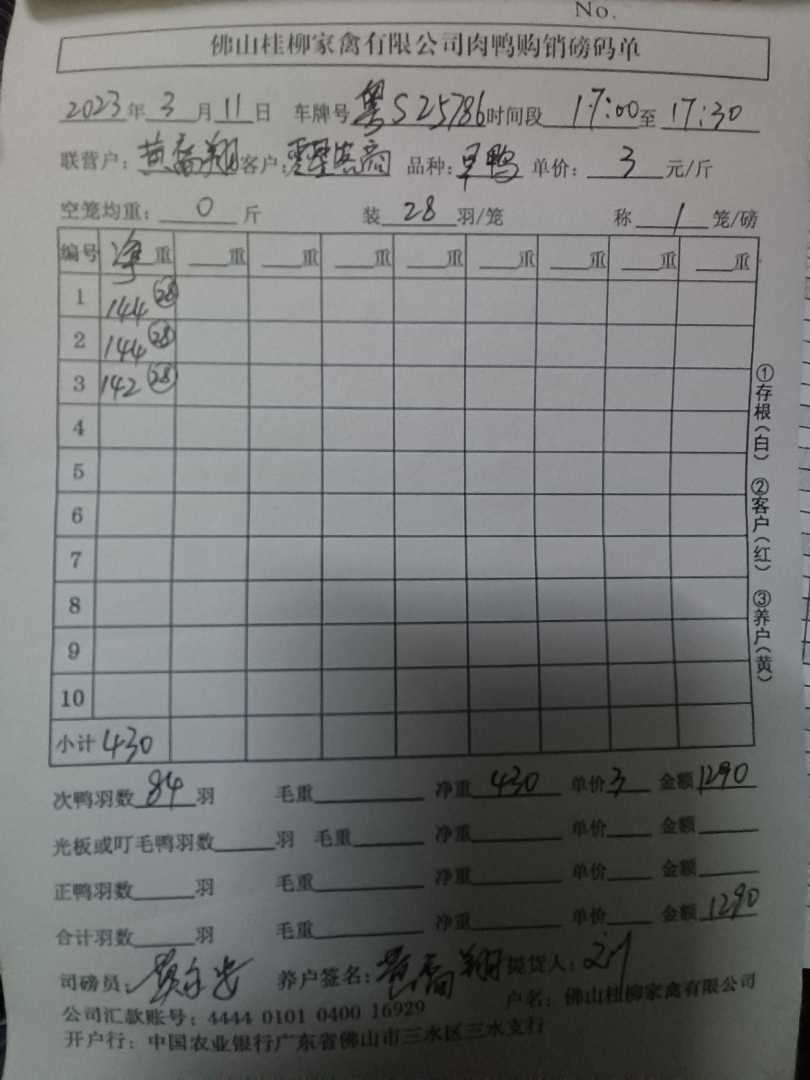 No.
佛山桂柳家禽有限公司肉鸭购销磅码单
2023年3月11日 车牌号粤S25786时间段17:00至17:30
联营户:黄乔翔客户:零星客商 品种:旱鸭 单价:3元/斤
空笼均重:0斤 装28羽/笼 称1笼/磅
编号 净重 重 重 重 重 重 重 重 重
1 144 28
2 144 28
3 142 28
4
5
6
7
8
9
10
小计 430
①存根(白) ②客户(红) ③养户(黄)
次鸭羽数84羽 毛重 净重430 单价3 金额1290
光板或叮毛鸭羽数 羽 毛重 净重 单价 金额
正鸭羽数 羽 毛重 净重 单价 金额
合计羽数 羽 毛重 净重 单价 金额1290
司磅员: 养户签名:黄乔翔 提货人:
公司汇款账号:4444 0101 0400 16929 户名:佛山桂柳家禽有限公司
开户行:中国农业银行广东省佛山市三水区三水支行